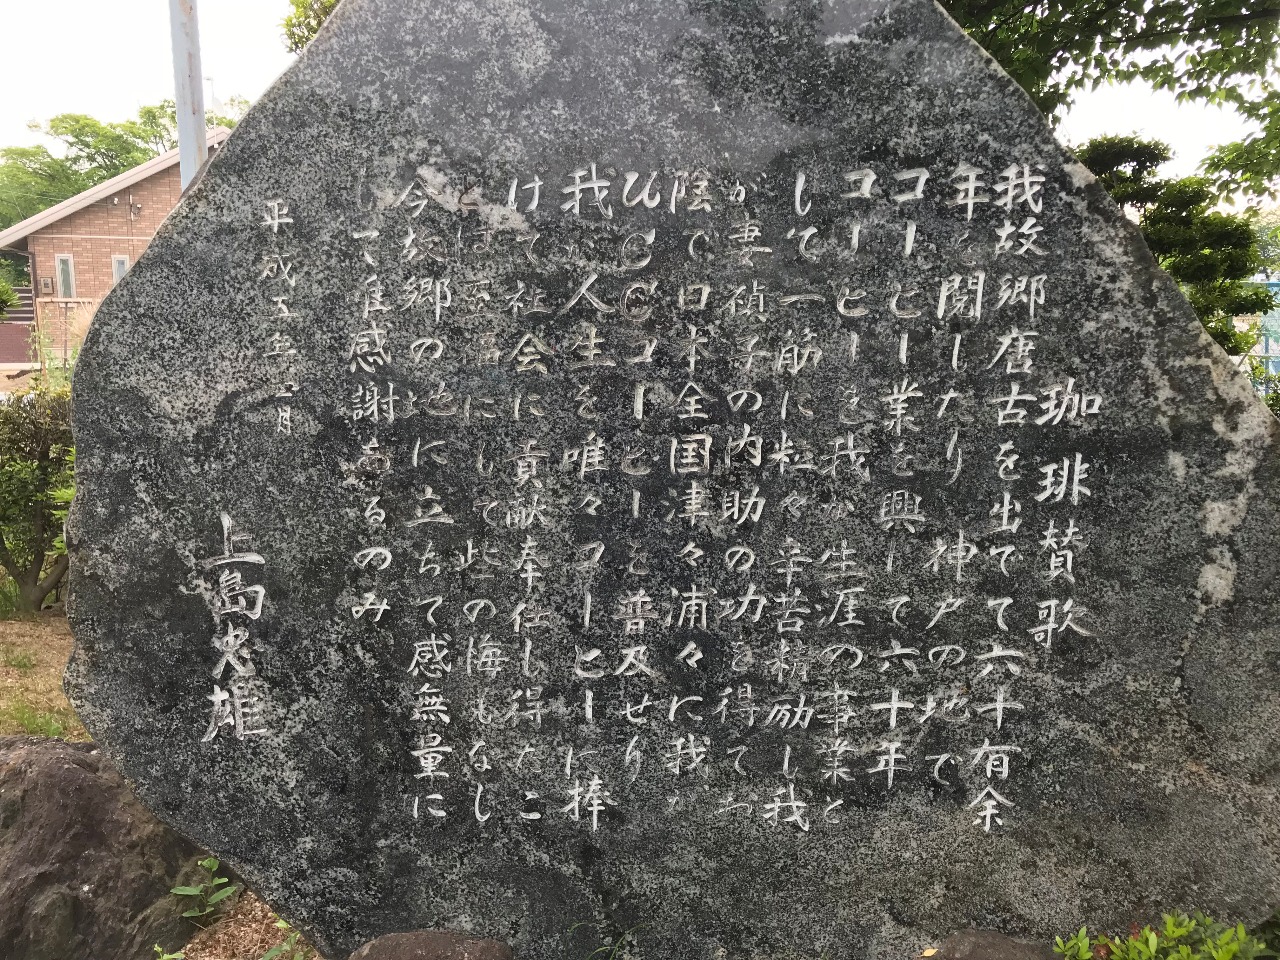 珈琲賛歌
我故郷唐古を出でて六十有余
年を閲したり 神戸の地で
コーヒー業を興して六十年
コーヒーを我が生涯の事業と
して一筋に粒々辛苦精励し我
が妻禎子の内助の功を得てお
陰で日本全国津々浦々に我が
UCCコーヒーを普及せり
我が人生を唯々コーヒーに捧
けて社会に貢献奉仕し得たこ
とは至福にして些の悔もなし
今故郷の地に立ちて感無量に
して唯感謝あるのみ
平成五年 月
上島忠雄